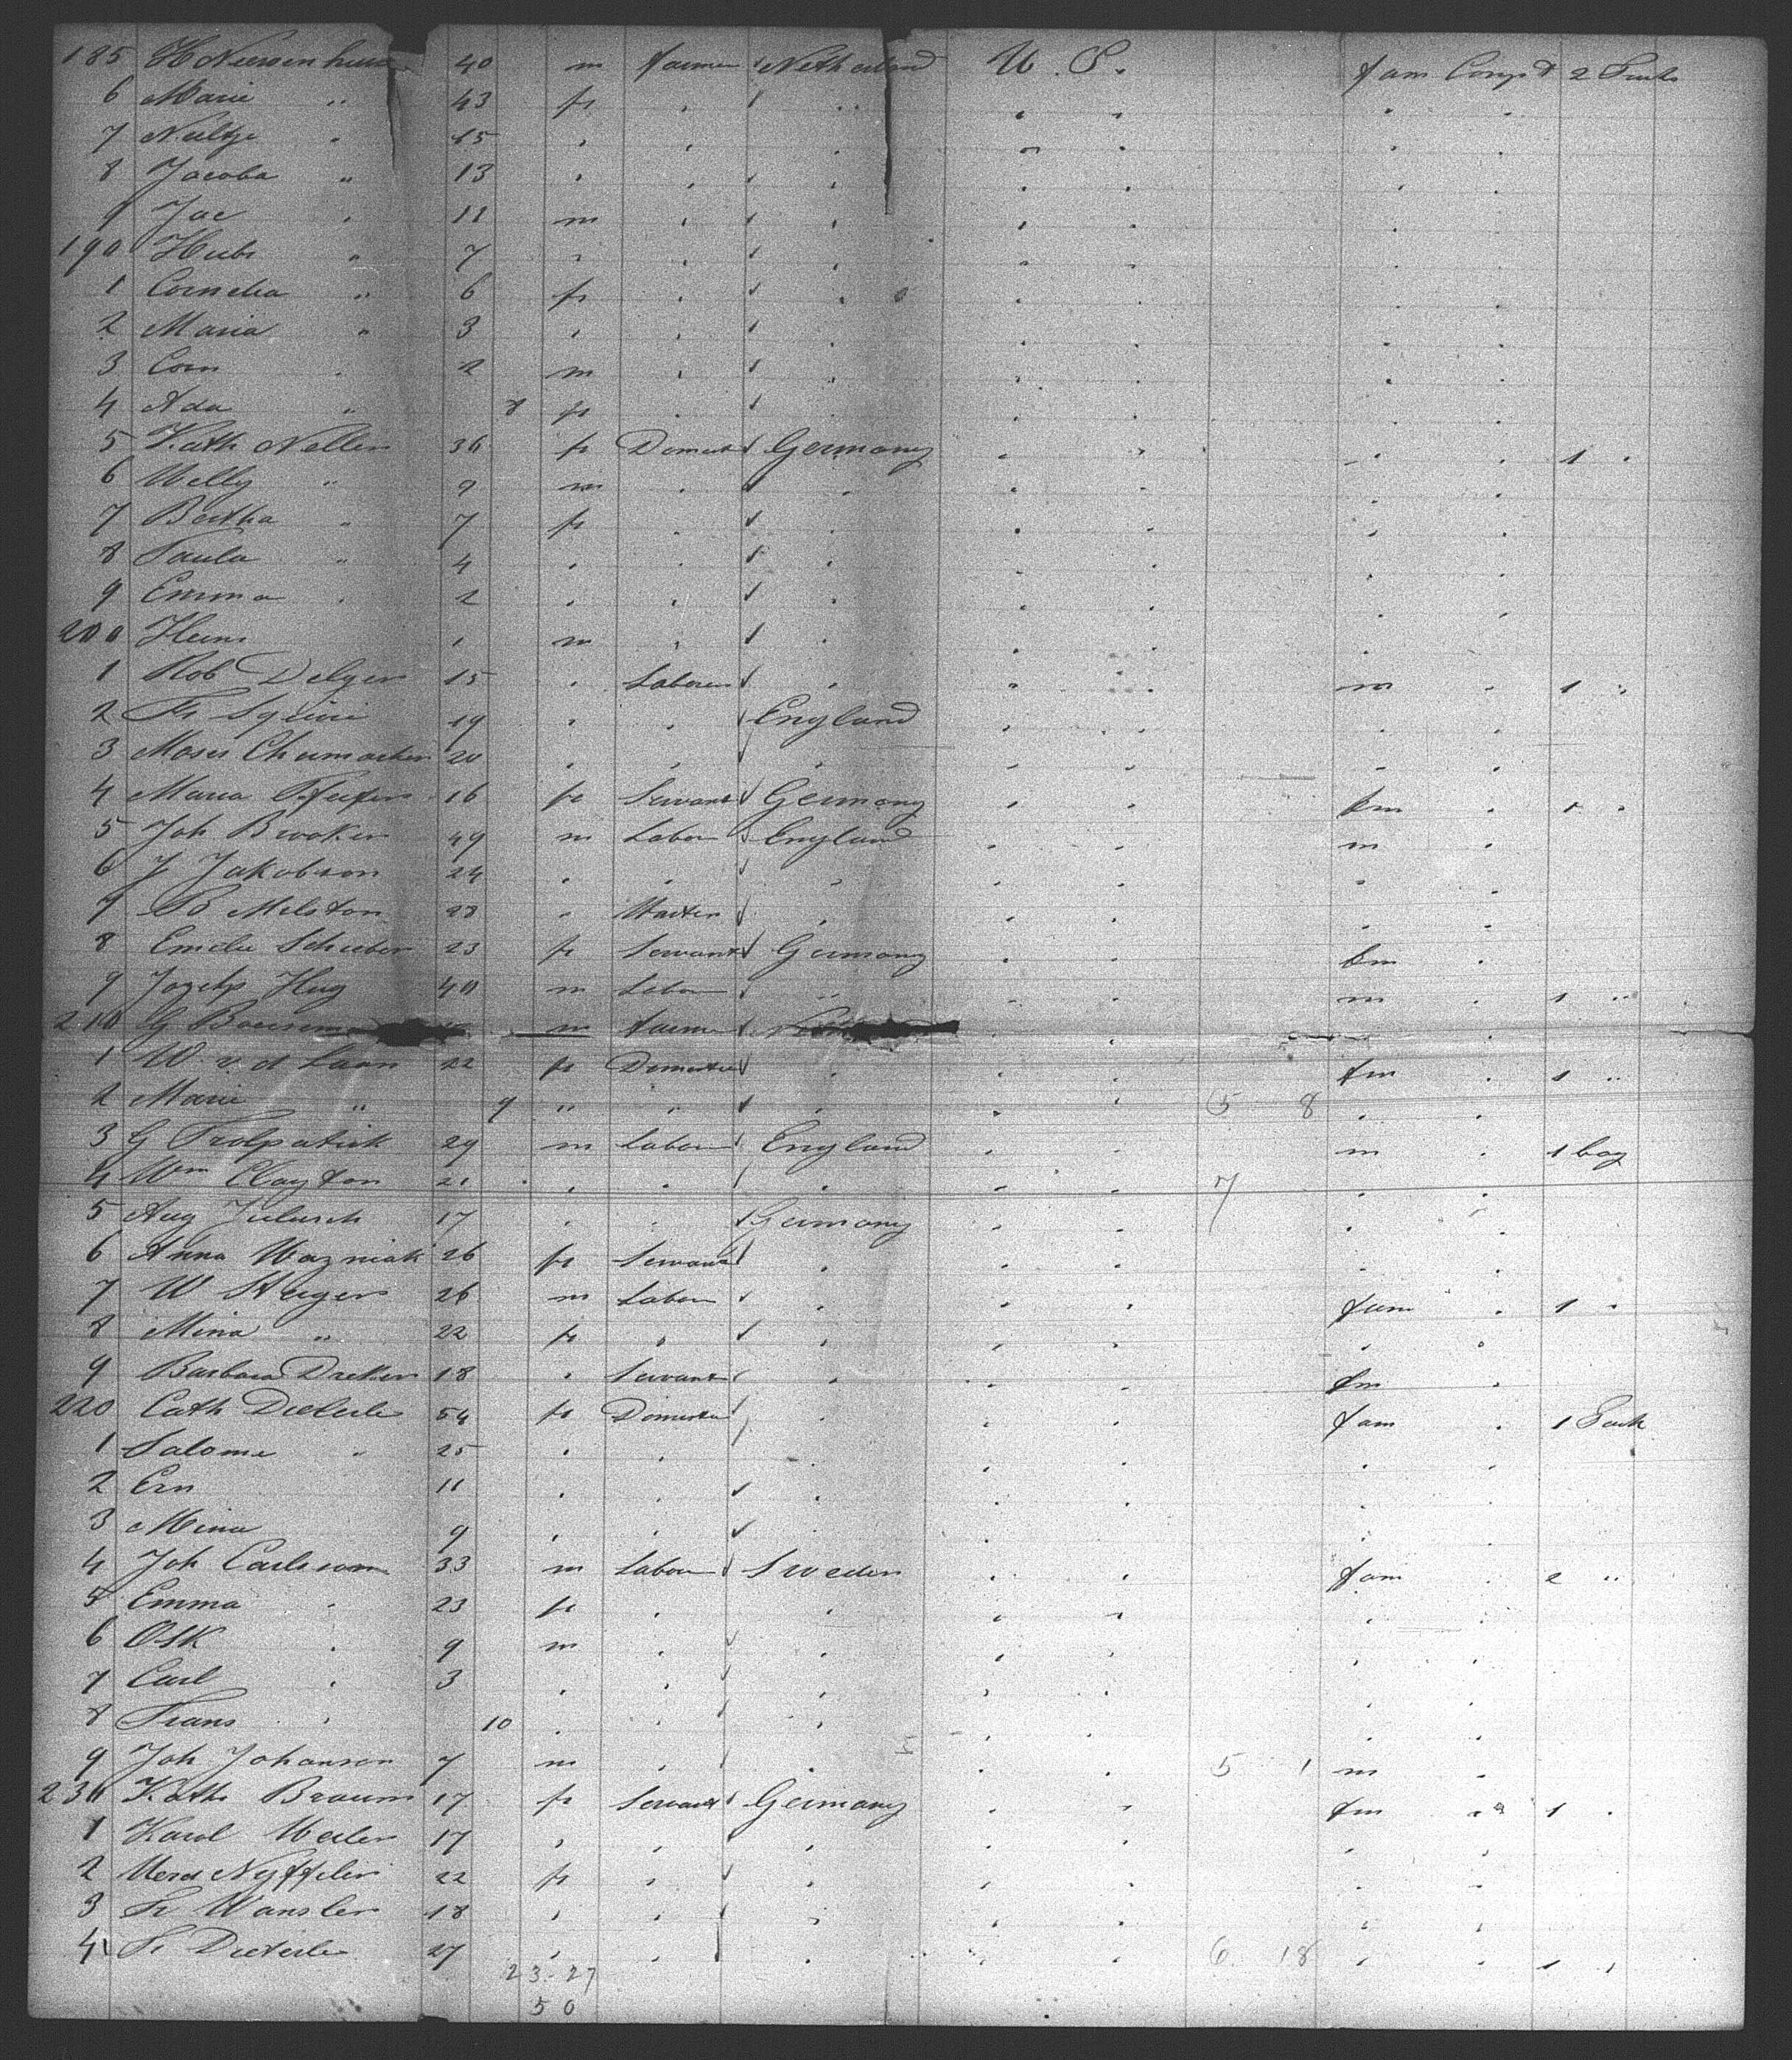 185 H Nieuwenhuis 40 m farmer Netherland U. S. fam Comp't 2 Pack
6 Marie " 43 fe " " "
7 Neeltje " 15 " " "
8 Jacoba " 13 " " "
9 Jac " 11 m " "
190 Huibr " 7 " " "
1 Cornelia " 6 fe " "
2 Maria " 3 " " "
3 Corn " 2 m " "
4 Ada " 8 fe " "
5 Kath Nellen 36 fe Domest Germany " " 1 "
6 Welly " 9 m " "
7 Bertha " 7 fe " "
8 Paula " 4 " " "
9 Emma " 2 " " "
200 Heinr 1 m " "
1 Rob Delger 15 " Laborer " m " 1 "
2 Fr Squire 19 " " England
3 Moses Chumacher 20 " " "
4 Maria Pfeifer 16 fe Servant Germany fm " 1 "
5 Joh Brooker 49 m Labor England m "
6 J Jakobson 24 " " "
7 B Milston 28 " Waiter "
8 Emilie Schieber 23 fe Servant Germany fm "
9 Joseph Hug 40 m Labor " m " 1 "
210 G m farmer
1 W v d Laan 22 fe Domestic " fm " 1 "
2 Marie " 9 " " " 5 8
3 G 29 m Labor England m " 1 bag
4 Wm Clayton 21 " " " 7
5 Aug 17 " " Germany
6 Anna Wozniak 26 fe Servant "
7 W Steger 26 m Labor " fam " 1 "
8 Mina " 22 fe " "
9 Barbara Dreker 18 " Servant " fm "
220 Cath Dieterle 54 fe Domestic " fam " 1 Pack
1 Salome " 25 " " "
2 Ern 11 " " "
3 Mina 9 " " "
4 Joh Carlsson 33 m Labor Sweden fam " 2 "
5 Emma " 23 fe " "
6 Osk " 9 m " "
7 Carl " 3 " " "
8 Frans " 10 " " "
9 Joh Johanson 7 m " " 5 1 m "
230 Kath Braun 17 fe Servant Germany fm " 1 "
1 Karol Weiler 17 " " "
2 Nyffeler 22 fe " "
3 Fr Wansler 18 " " "
4 Fr Dieterle 27 " " " 6 18 " " 1 "
23-27
50